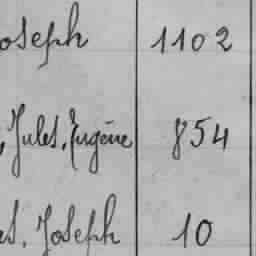 oseph 1102
, Jules, Eugène 854
es, Joseph 10